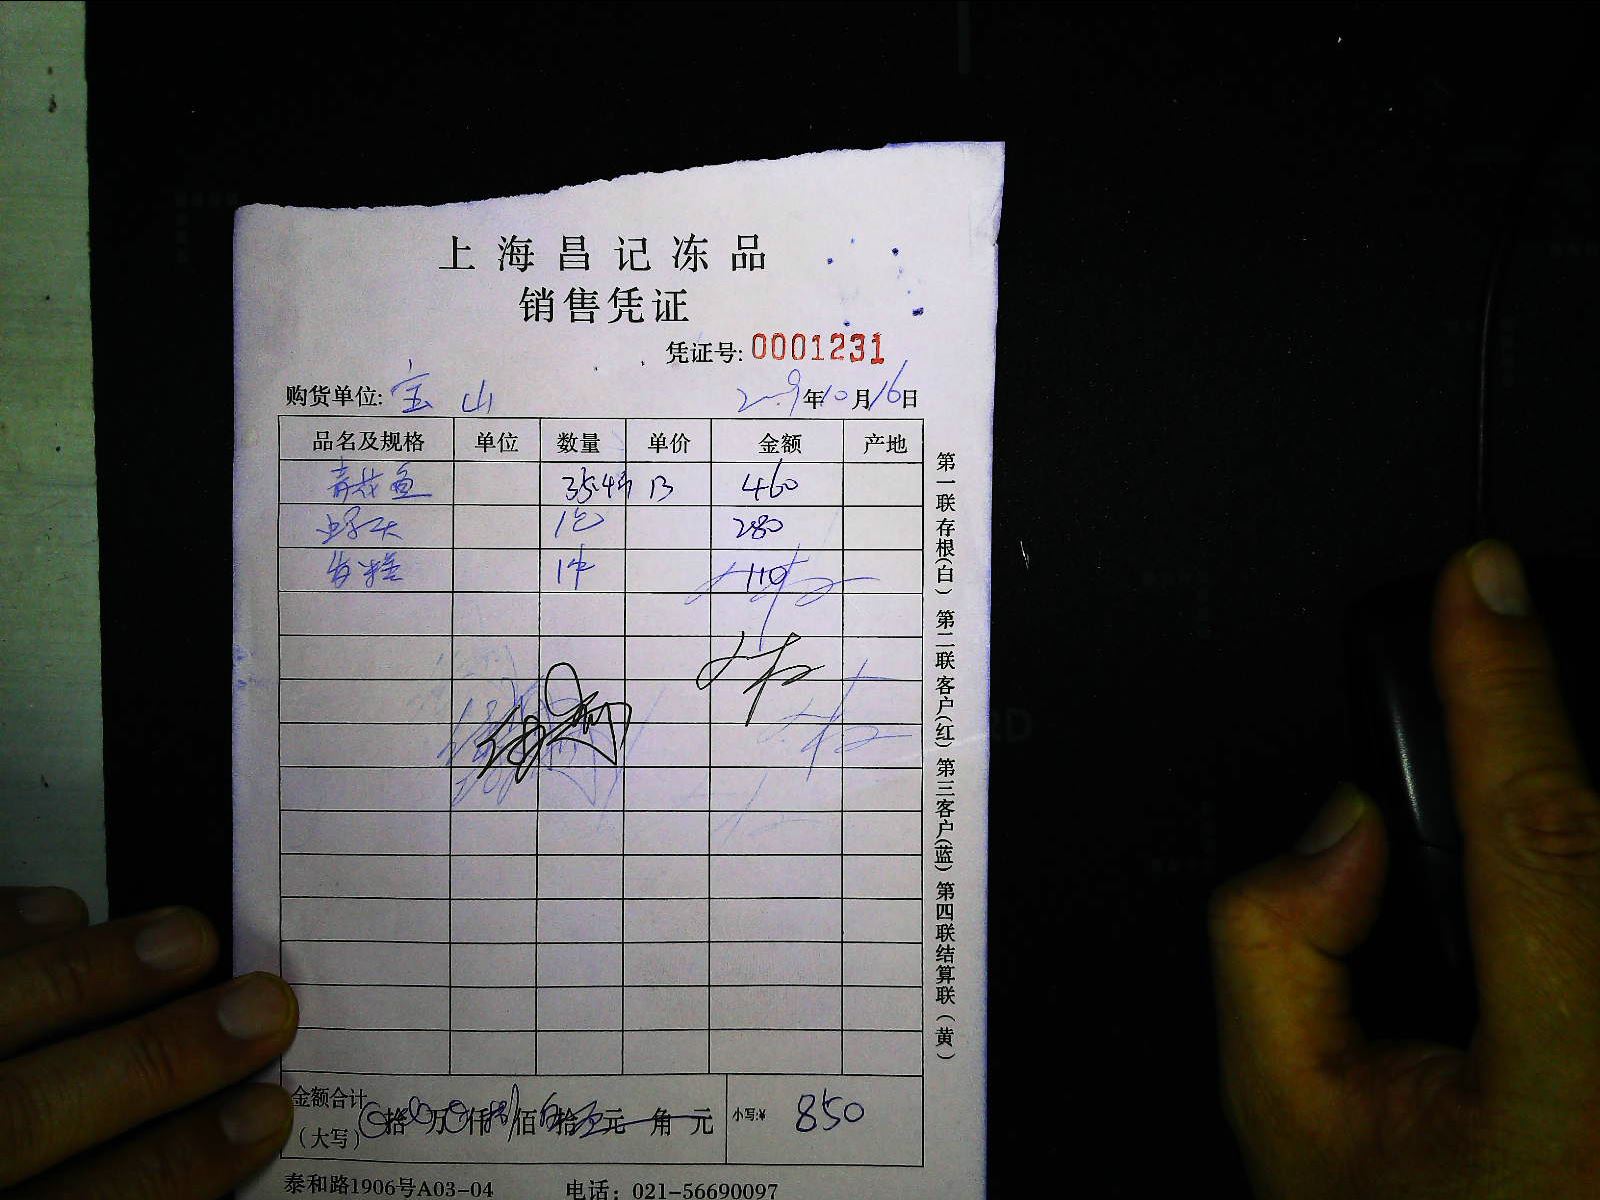 上海昌记冻品
销售凭证
凭证号: 0001231
购货单位: 宝山 年10月16日
品名及规格 单位 数量 单价 金额 产地
青花鱼 35.4斤 13 460
1包 280
1件 110
金额合计
（大写） 拾 万 仟 佰 拾 元 角 元 小写:¥ 850
泰和路1906号A03-04 电话：021-56690097
第一联存根(白) 第二联客户(红) 第三客户(蓝) 第四联结算联(黄)